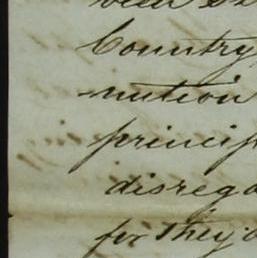 been
Country
nution
princip
disrega
for They